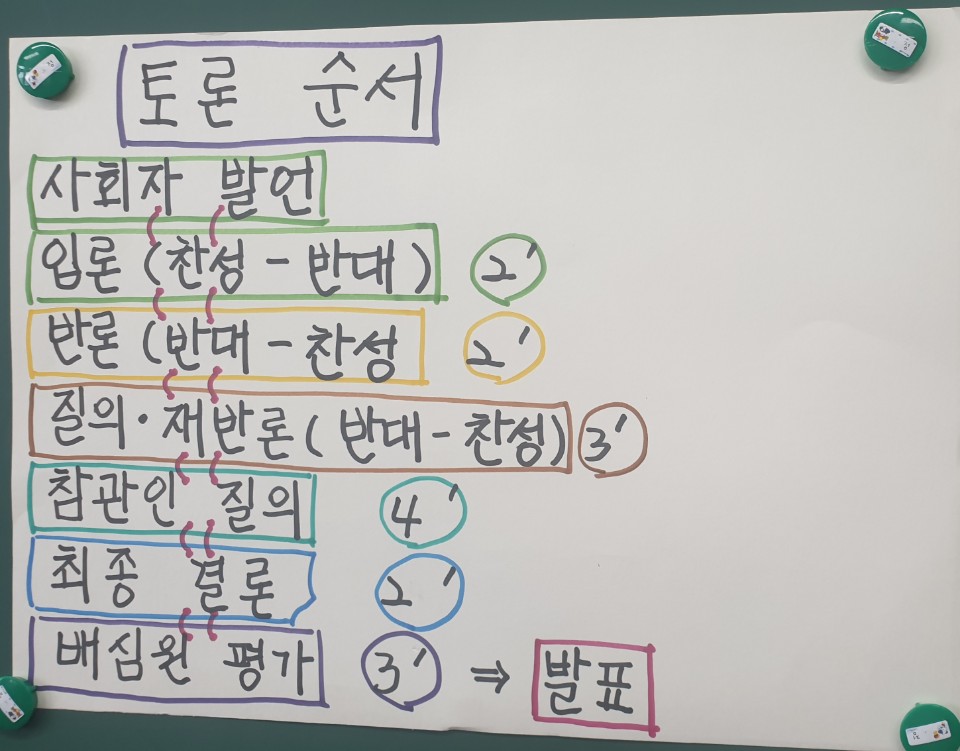 토론 순서
사회자 발언
입론 (찬성 - 반대) 2'
반론 (반대 - 찬성 2'
질의·재반론 (반대 - 찬성) 3'
참관인 질의 4'
최종 결론 2'
배심원 평가 3' ⇒ 발표